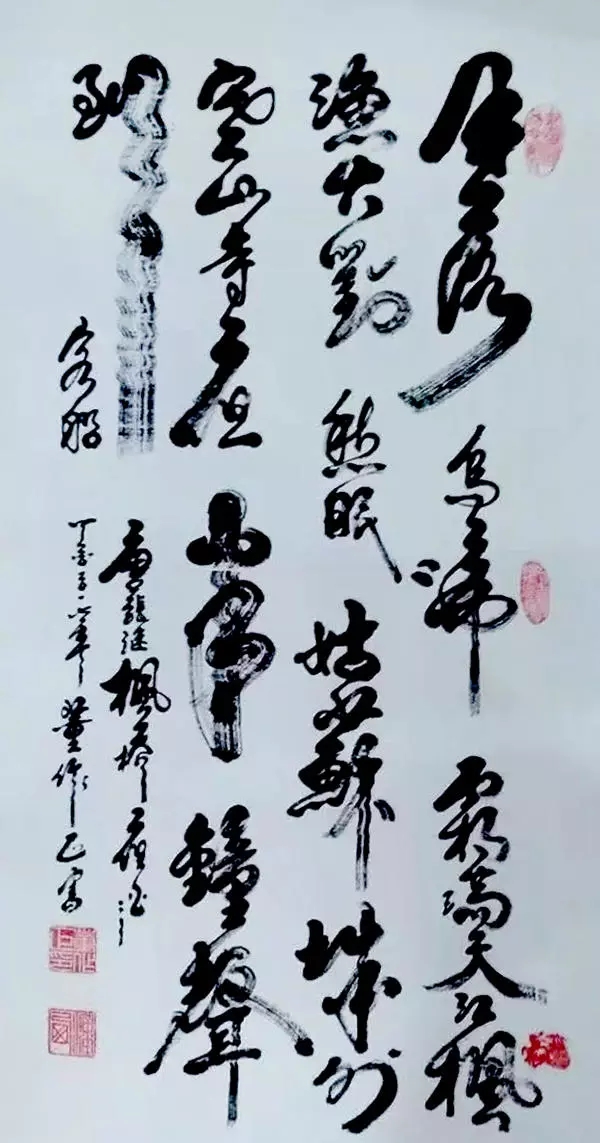 月落烏啼霜滿天江楓
漁火對愁眠姑蘇城外
寒山寺夜半鐘聲
到客船
唐張继楓橋夜泊
丁 年董作 寫